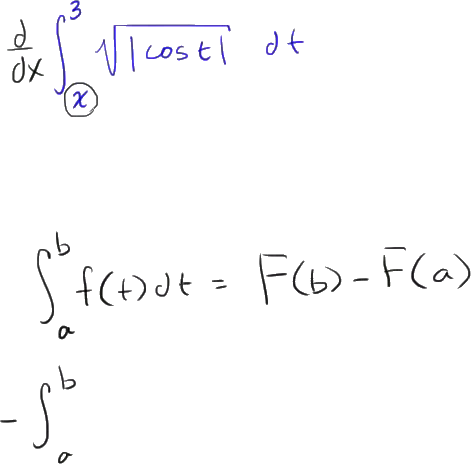 d/dx ∫_x^3 √|cos t| dt
∫_a^b f(t) dt = F(b) - F(a)
- ∫_a^b